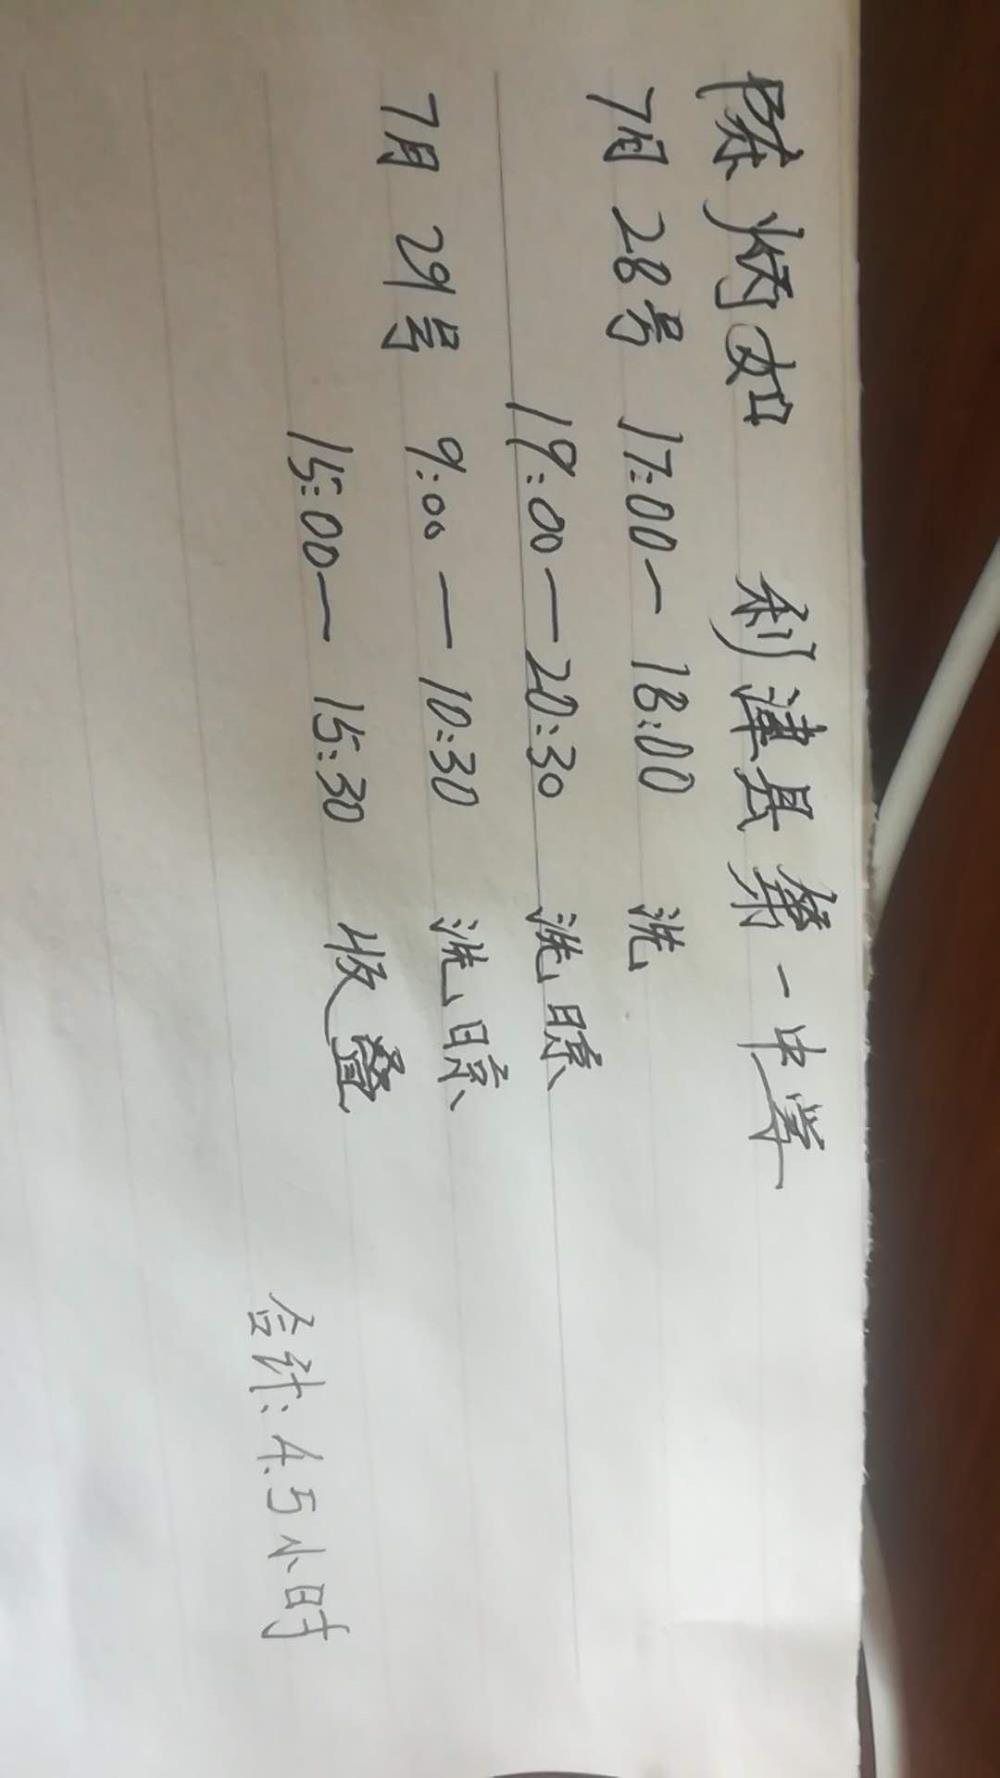 陈炳如 利津县第一中学
7月28号 17:00—18:00 洗
19:00—20:30 洗晾
7月29号 9:00—10:30 洗晾
15:00—15:30 收叠
合计:4.5小时